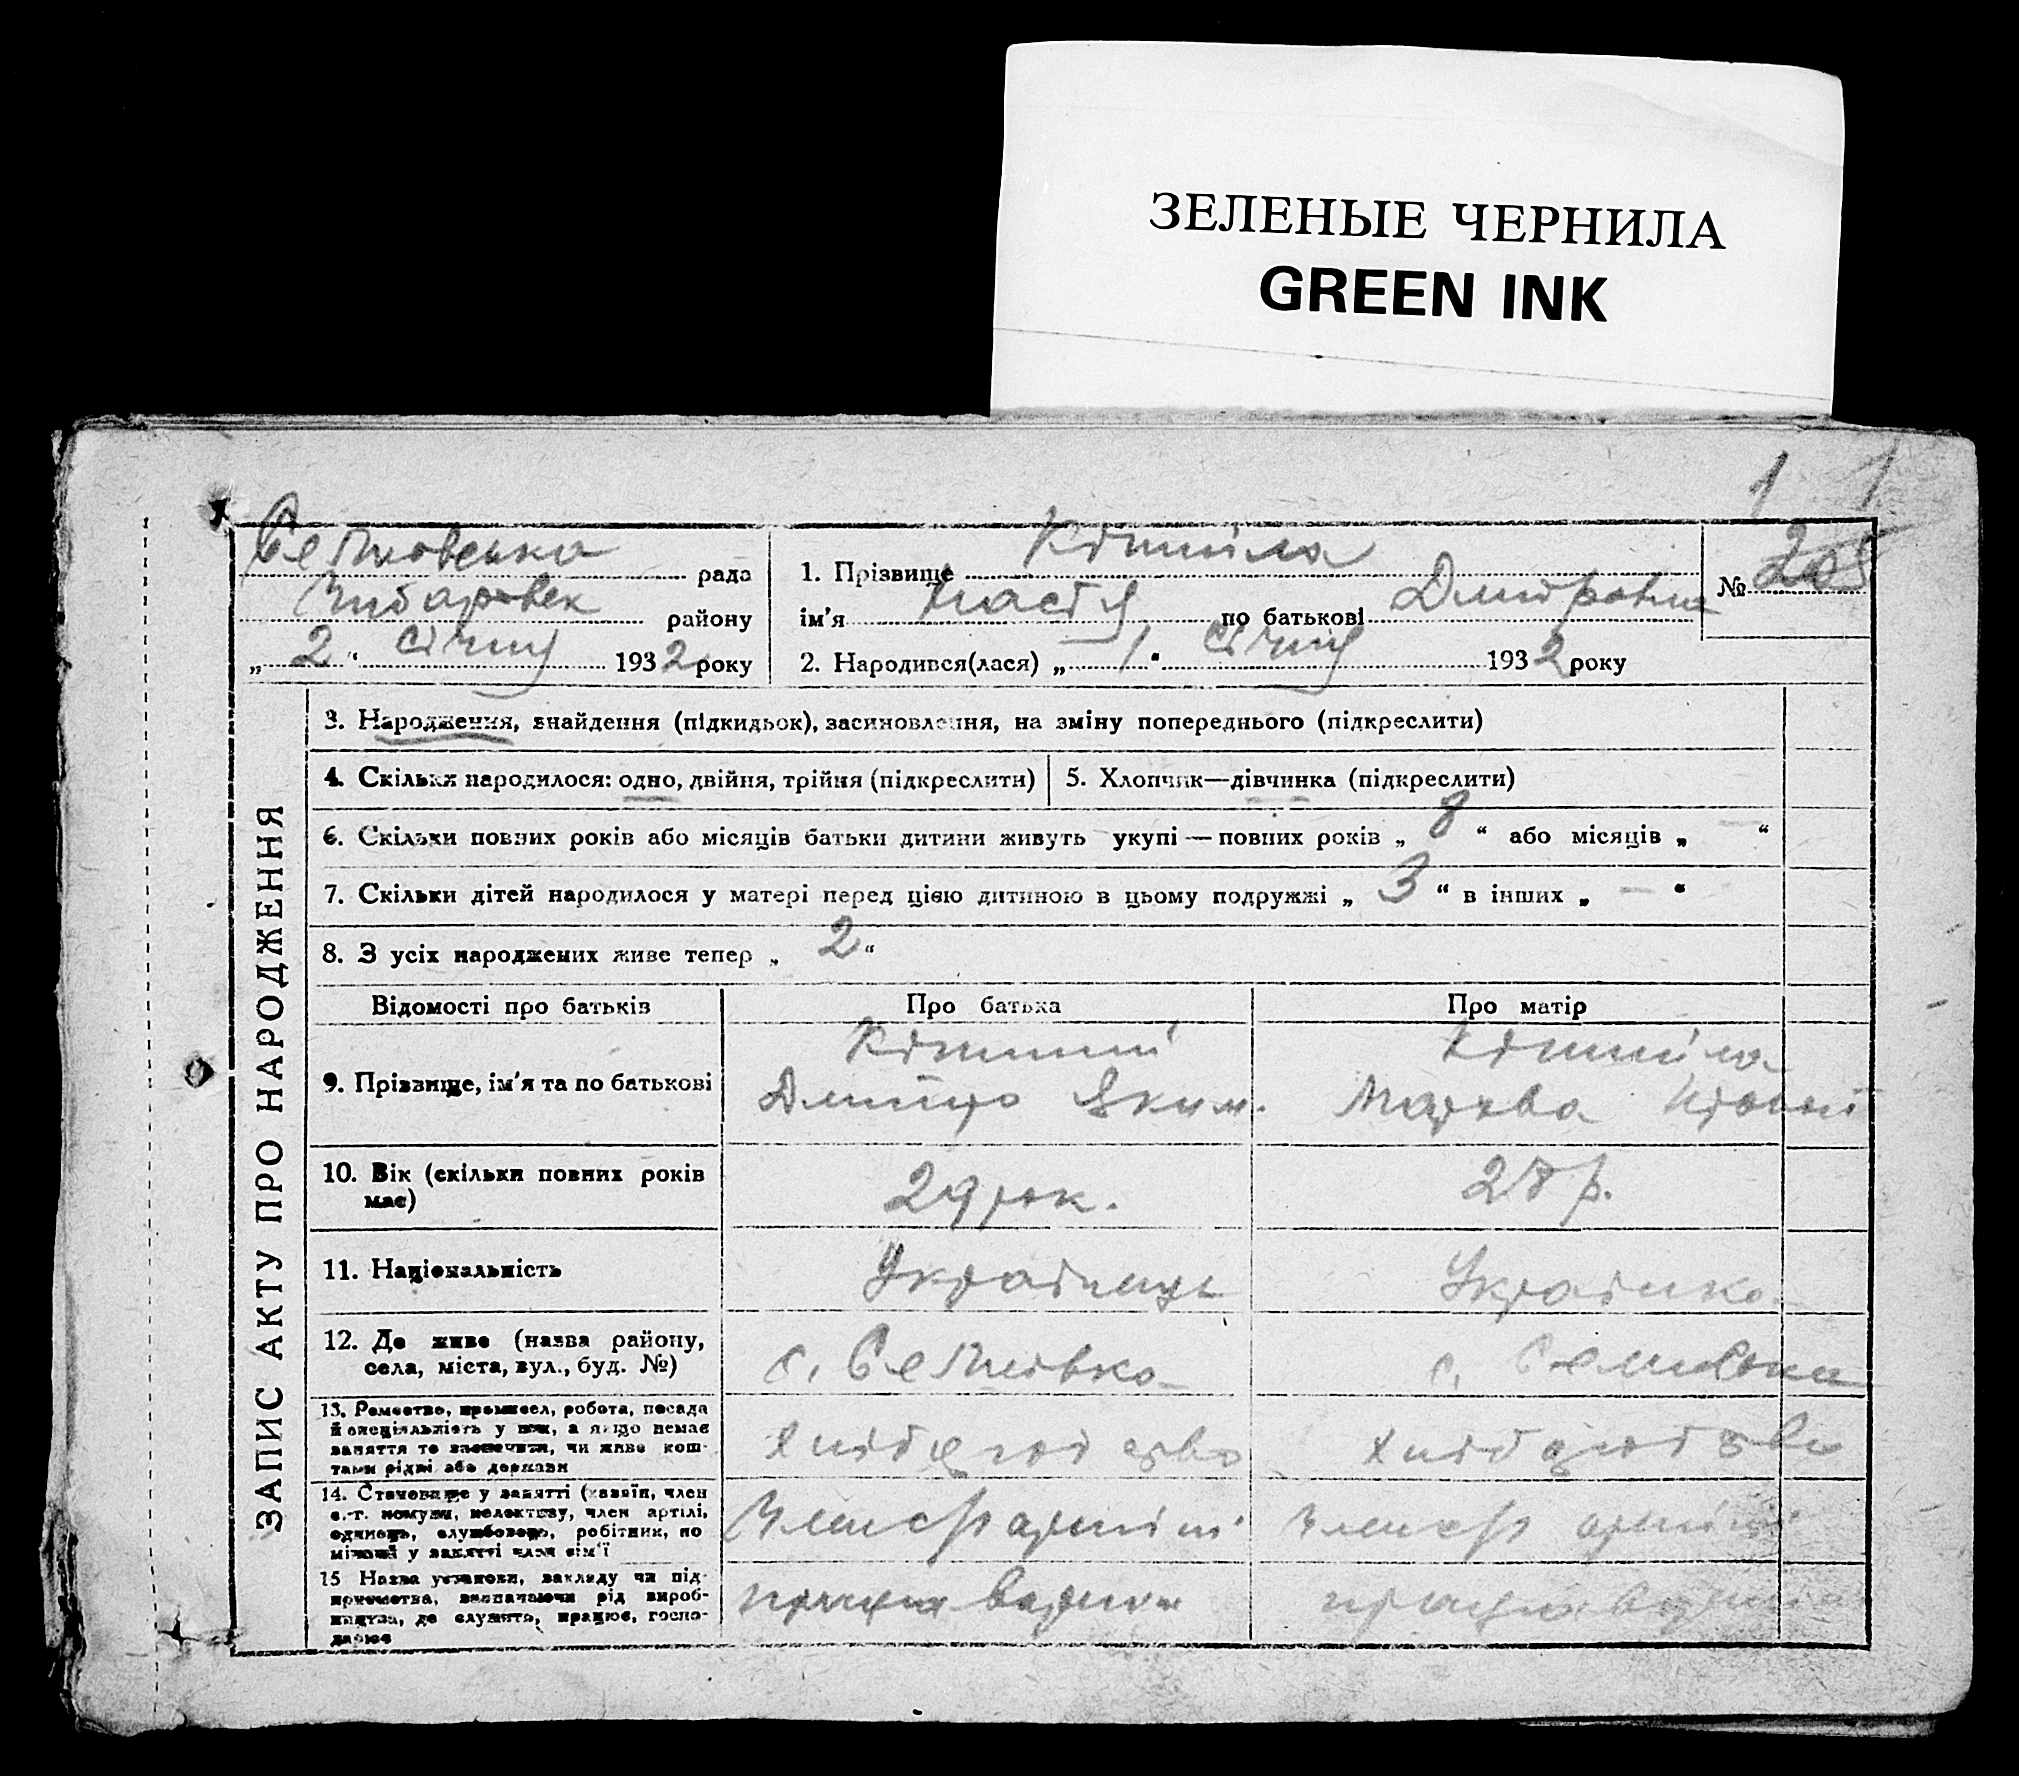 ЗЕЛЕНЫЕ ЧЕРНИЛА
GREEN INK
1 1
рада
району
„ 2 “ січня 1932 року
1. Прізвище
ім'я Настя по батькові Дмитровна
№
2. Народився(лася) „ 1 “ січня 1932 року
ЗАПИС АКТУ ПРО НАРОДЖЕННЯ
3. Народження, знайдення (підкидьок), засиновлення, на зміну попереднього (підкреслити)
4. Скільки народилося: одно, двійня, трійня (підкреслити)
5. Хлопчик—дівчинка (підкреслити)
6. Скільки повних років або місяців батьки дитини живуть укупі — повних років „ 8 “ або місяців „ — “
7. Скільки дітей народилося у матері перед цією дитиною в цьому подружжі „ 3 “ в інших „ — “
8. З усіх народжених живе тепер „ 2 “
Відомості про батьків
Про батька
Про матір
9. Прізвище, ім'я та по батькові
Дмитро Яким.
10. Вік (скільки повних років
має)
29 рок.
28 р.
11. Національність
Українець
Українка
12. Де живе (назва району,
села, міста, вул., буд. №)
с. Семівка
с.
13. Ремество, промисел, робота, посада
й спеціяльність у ній, а якщо немає
заняття то зазначити, чи живе кош-
тами рідні або держави
хліборобство
хліборобство
14. Становище у занятті (хазяїн, член
с.-г. комуни, колективу, член артілі,
одинець, службовець, робітник, по
міжний у занятті член сім'ї
Член с/г артілі
Член с/г артілі
15 Назва установи, закладу чи під-
приємства, зазначаючи рід вироб-
ництва, де служить, працює, госпо-
дарює